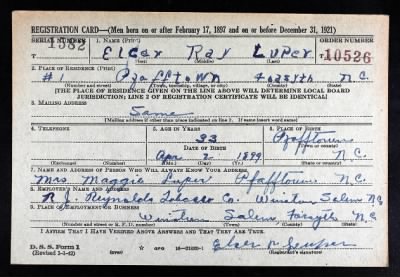 REGISTRATION CARD—(Men born on or after February 17, 1897 and on or before December 31, 1921)
SERIAL NUMBER 1. NAME (Print) ORDER NUMBER
1582 Elcar Ray Luper 10526
(First) (Middle) (Last)
2. PLACE OF RESIDENCE (Print)
#1 Pfafftown Forsyth N.C.
(Number and street) (Town, township, village, or city) (County) (State)
[THE PLACE OF RESIDENCE GIVEN ON THE LINE ABOVE WILL DETERMINE LOCAL BOARD
JURISDICTION; LINE 2 OF REGISTRATION CERTIFICATE WILL BE IDENTICAL]
3. MAILING ADDRESS
Same
[Mailing address if other than place indicated on line 2. If same insert word same]
4. TELEPHONE 5. AGE IN YEARS 6. PLACE OF BIRTH
Pfafftown
DATE OF BIRTH (Town or county)
Apr 2 1899 N.C.
(Exchange) (Number) (Mo.) (Day) (Yr.) (State or country)
7. NAME AND ADDRESS OF PERSON WHO WILL ALWAYS KNOW YOUR ADDRESS
Mrs. Maggie Luper Pfafftown N.C.
8. EMPLOYER'S NAME AND ADDRESS
R. J. Reynolds Tobacco Co. Winston Salem N.C.
9. PLACE OF EMPLOYMENT OR BUSINESS
Winston Salem Forsyth N.C.
(Number and street or R. F. D. number) (Town) (County) (State)
I AFFIRM THAT I HAVE VERIFIED ABOVE ANSWERS AND THAT THEY ARE TRUE.
D. S. S. Form 1
(Revised 1-1-42) (over)